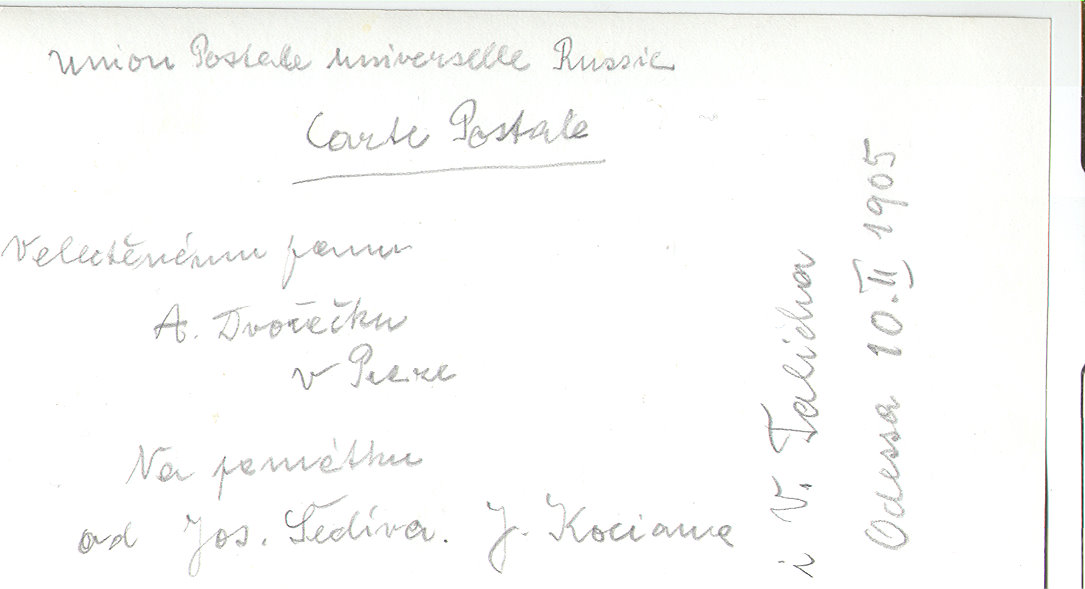 Union Postale universelle Russie
Carte Postale
Velectěnému panu
A. Dvořáčku
v Praze
Na památku
od Jos. Šediva. J. Kociana
i V. Talicha
Odessa 10.II 1905